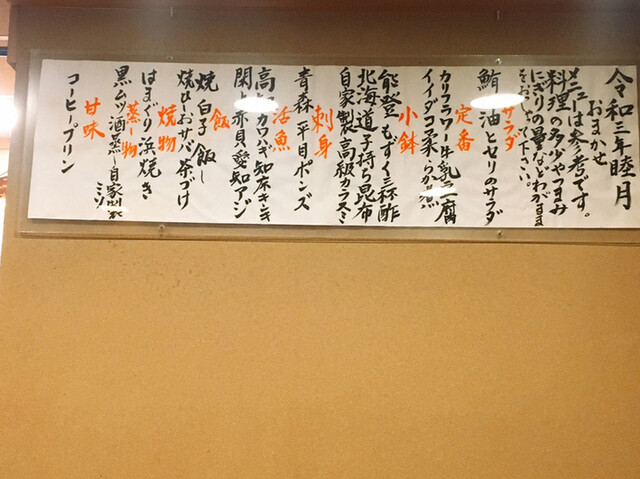 令和三年睦月
おまかせ
メニューは参考です。
料理の多少やつまみ
にぎりの量などわがまま
をおっしゃて下さい。
サラダ
鮪油とセリのサラダ
定番
カリフラワー牛乳豆腐
イイダコ柔らか煮
小鉢
能登もずく三杯酢
北海道子持ち昆布
自家製高級カラスミ
刺身
青森平目ポンズ
活魚
カワハギ知床キンキ
関赤貝愛知アジ
飯
焼白子飯
焼ひしおサバ茶づけ
焼物
はまぐり浜焼き
蒸し物
黒ムツ酒蒸し自家製ミソ
甘味
コーヒープリン